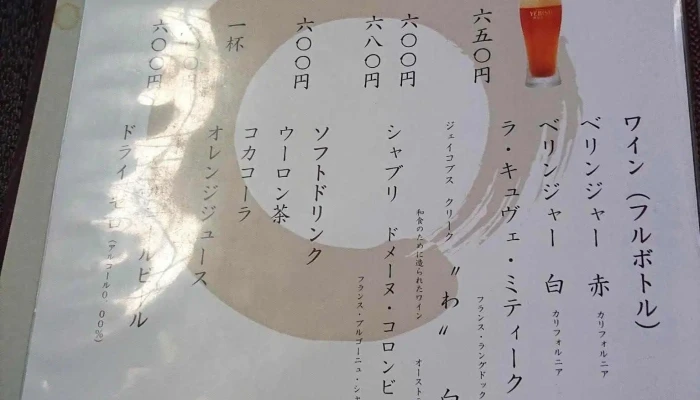 ワイン（フルボトル）
ベリンジャー 赤 カリフォルニア
ベリンジャー 白 カリフォルニア
ラ・キュヴェ・ミティーク
フランス・ラングドック
ジェイコブス クリーク "わ" 白
和食のために造られたワイン オースト
シャブリ ドメーヌ・コロンビ
フランス・ブルゴーニュ・シャ
ソフトドリンク
ウーロン茶
コカコーラ
オレンジジュース
ールビール
ドライゼロ（アルコール0.00%）
六五〇円
六〇〇円
六八〇円
六〇〇円
一杯
六〇〇円